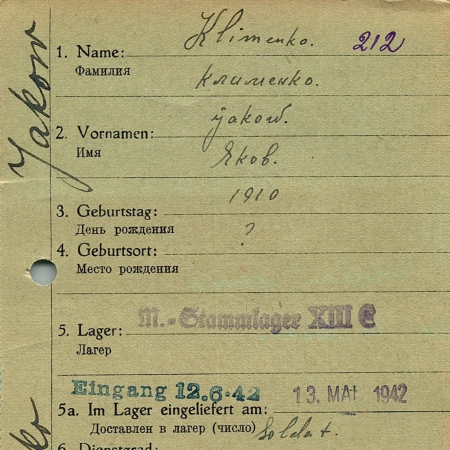 Klimenko. 212
1. Name:
Фамилия
Клименко.
Jakow
jakow.
2. Vornamen:
Имя
Яков.
1910
3. Geburtstag:
День рождения
?
4. Geburtsort:
Место рождения
M.-Stammlager XIII C
5. Lager:
Лагер
Eingang 12.6.42 13. MAI 1942
5a. Im Lager eingeliefert am:
Доставлен в лагер (число) Soldat.
6. Dienstgrad: